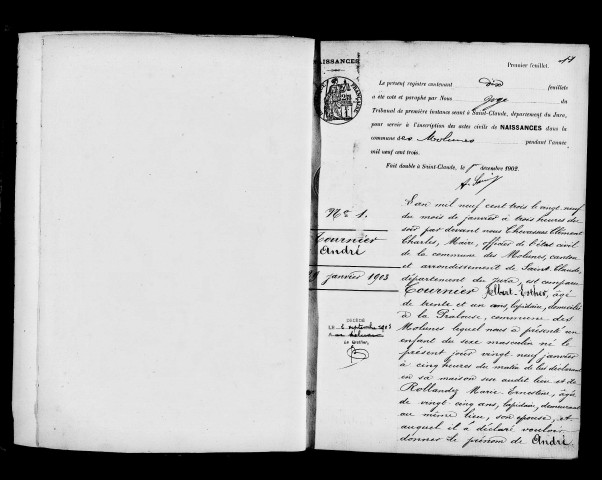 17
Premier feuillet.
NAISSANCES
Le présent registre contenant dix feuillets
a été coté et paraphé par Nous Juge du
Tribunal de première instance séant à Saint-Claude, département du Jura,
pour servir à l'inscription des actes civils de NAISSANCES dans la
commune des Molunes pendant l'année
mil neuf cent trois.
Fait double à Saint-Claude, le décembre 1902.
No 1.
Tournier
André
29 janvier 1903
DÉCÉDÉ
LE 2 septembre 1983
Le Greffier,
L'an mil neuf cent trois le vingt neuf
du mois de janvier à trois heures du
soir par devant nous Chevassus Clément
Charles, Maire, officier de l'état civil
de la commune des Molunes, canton
et arrondissement de Saint-Claude,
département du Jura, est comparu
Tournier Albert-Esther, âgé
de trente et un ans, lapidaire, domicilié
à la Pralouse, commune des
Molunes lequel nous a présenté un
enfant du sexe masculin né le
présent jour vingt neuf janvier
à cinq heures du matin de lui déclarant
en sa maison sise audit lieu et de
Rollandez Marie Ernestine, âgée
de vingt-cinq ans, lapidaire, demeurant
au même lieu, son épouse, et
auquel il a déclaré vouloir
donner le prénom de André.